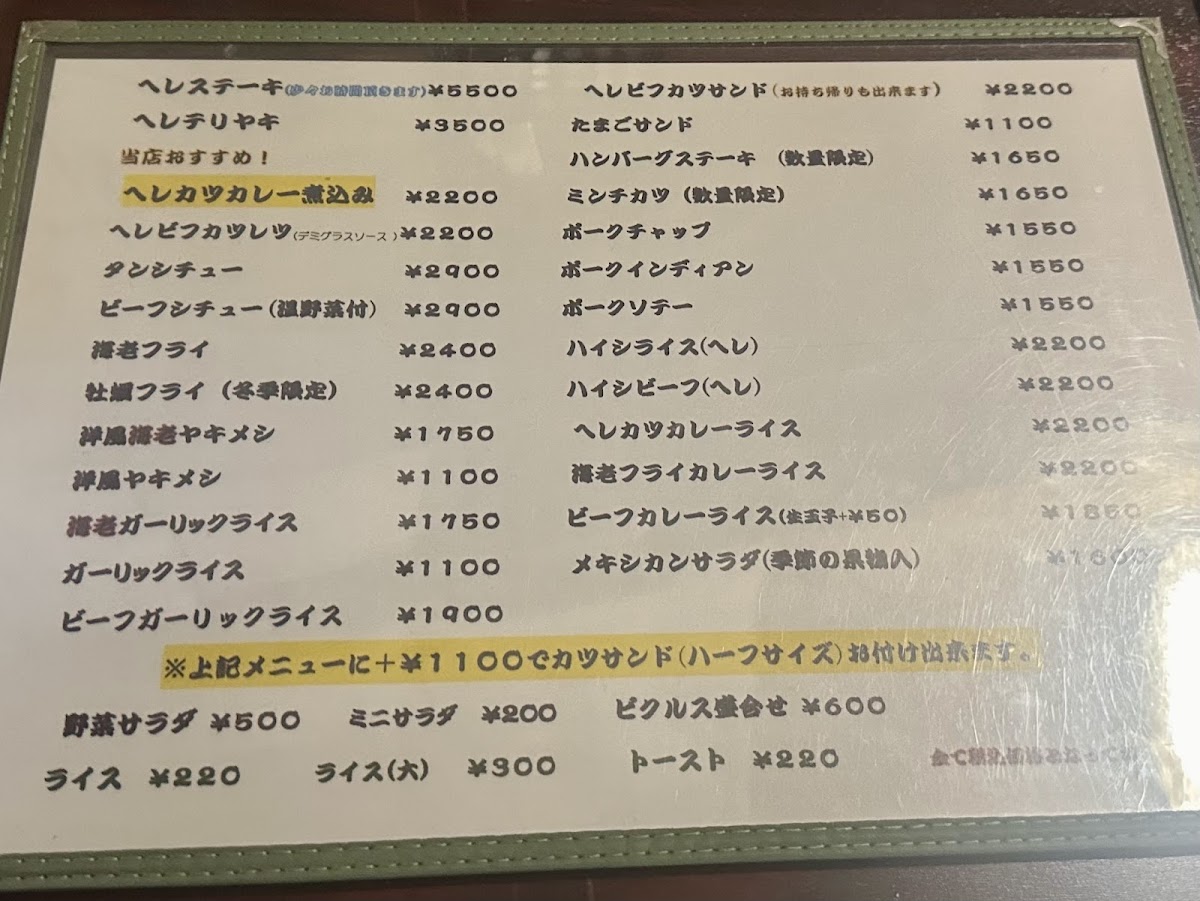 ヘレステーキ(少々お時間頂きます)¥5500
ヘレテリヤキ ¥3500
当店おすすめ！
ヘレカツカレー煮込み ¥2200
ヘレビフカツレツ(デミグラスソース)¥2200
タンシチュー ¥2900
ビーフシチュー(温野菜付) ¥2900
海老フライ ¥2400
牡蠣フライ (冬季限定) ¥2400
洋風海老ヤキメシ ¥1750
洋風ヤキメシ ¥1100
海老ガーリックライス ¥1750
ガーリックライス ¥1100
ビーフガーリックライス ¥1900
ヘレビフカツサンド(お持ち帰りも出来ます) ¥2200
たまごサンド ¥1100
ハンバーグステーキ (数量限定) ¥1650
ミンチカツ (数量限定) ¥1650
ポークチャップ ¥1550
ポークインディアン ¥1550
ポークソテー ¥1550
ハイシライス(ヘレ) ¥2200
ハイシビーフ(ヘレ) ¥2200
ヘレカツカレーライス ¥2200
海老フライカレーライス ¥2200
ビーフカレーライス(生玉子+¥50) ¥1850
メキシカンサラダ(季節の果物入) ¥1600
※上記メニューに＋¥1100でカツサンド(ハーフサイズ)お付け出来ます。
野菜サラダ ¥500 ミニサラダ ¥200 ピクルス盛合せ ¥600
ライス ¥220 ライス(大) ¥300 トースト ¥220
全て税込価格となって